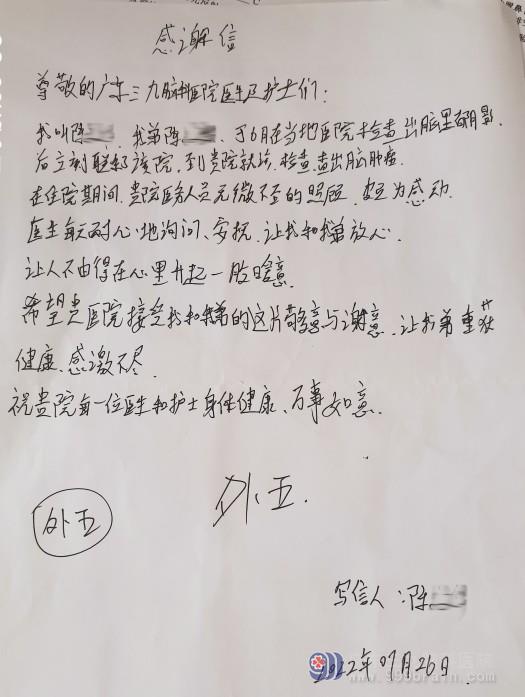 感谢信
尊敬的广东三九脑科医院医生及护士们:
我叫陈 我弟陈 于6月在当地医院检查出脑里阴影
后立刻联系该院,到贵院就诊,检查,查出脑肿瘤.
在住院期间,贵院医务人员无微不至的照顾,更为感动.
医生每天耐心地询问、安抚,让我和我弟放心.
让人不由得在心里升起一股暖意.
希望贵医院接受我和我弟的这片敬意与谢意,让我弟重获
健康,感激不尽.
祝贵院每一位医生和护士身体健康、万事如意.
外五
外五.
写信人:陈
2022年07月26日.
www.999brain.com